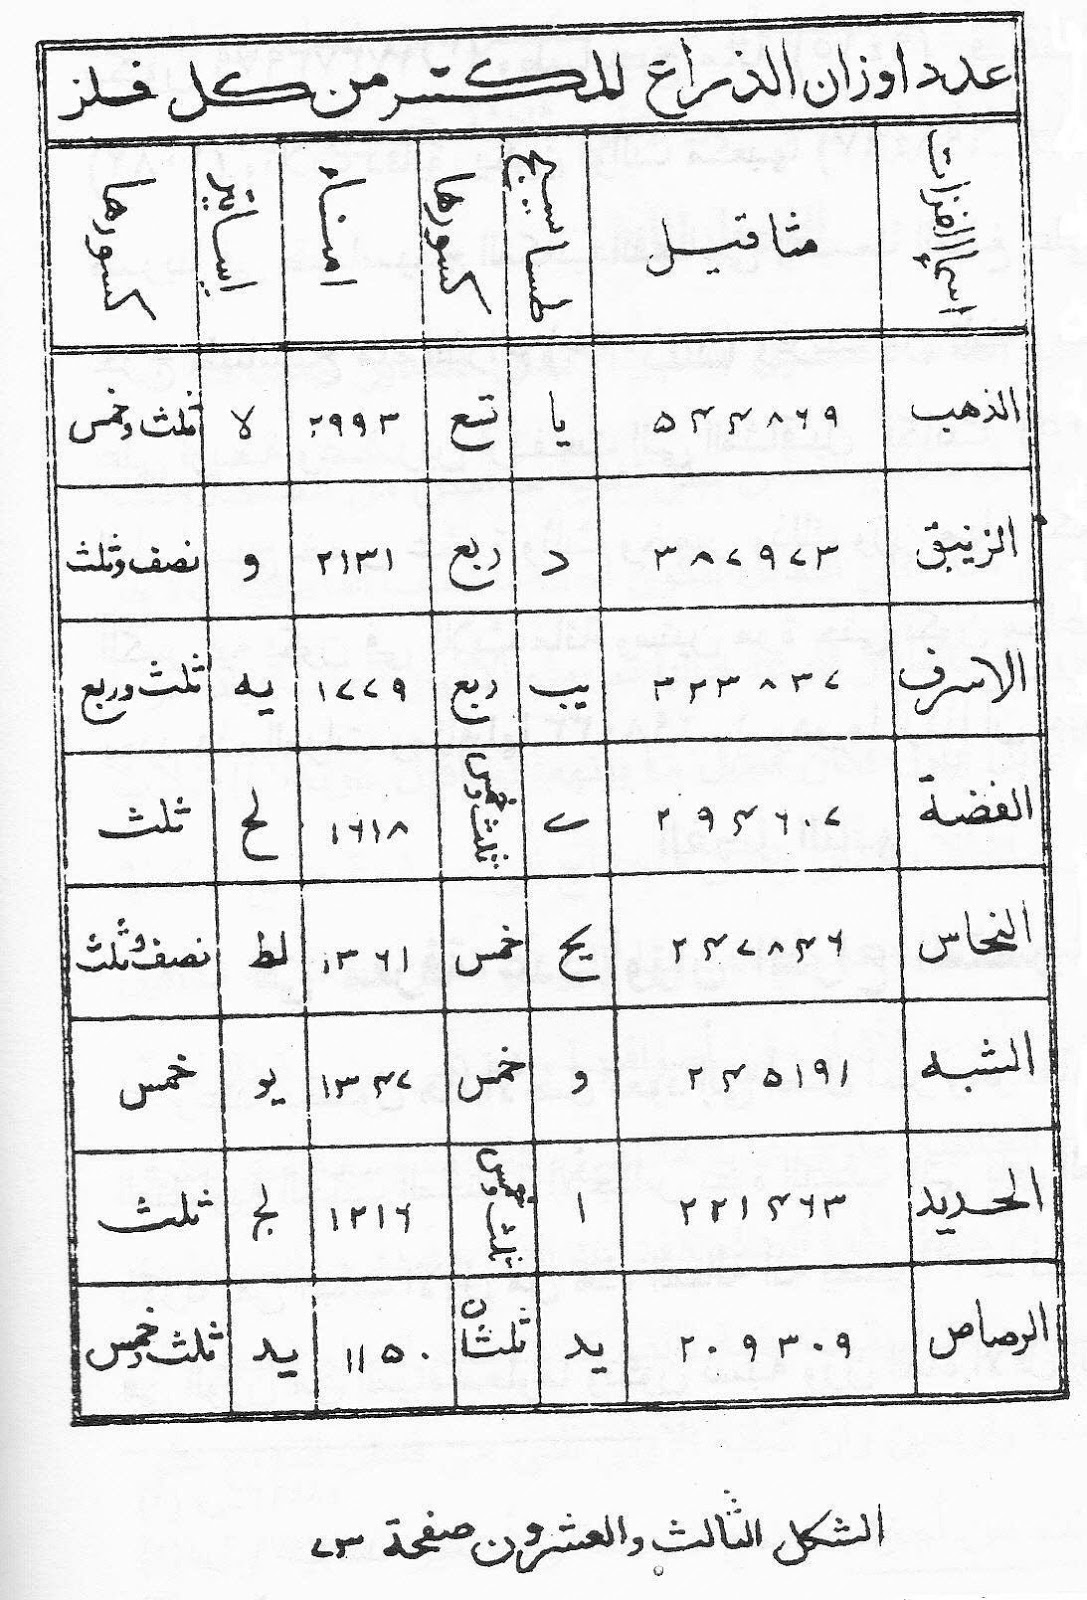 عدد اوزان الذراع المكسر من كل فلز
اسما الفلزات مثاقيل طساسيج كسورها امناء اساتير كسورها
الذهب ٥٤٤٨٦٩ يا تسع ٢٩٩٣ لا ثلث وخمس
الزيبق ٣٨٧٩٧٣ د ربع ٢١٣١ و نصف وثلث
الاسرف ٣٢٣٨٣٧ يب ربع ١٧٧٩ يه ثلث وربع
الفضة ٢٩٤٦٠٧ ے ثلث وخمس ١٦١٨ لح ثلث
النحاس ٢٤٧٨٤٦ يح خمس ١٣٦١ لط نصف وثلث
الشبه ٢٤٥١٩١ و خمس ١٣٤٧ يو خمس
الحديد ٢٢١٤٦٣ ا ثلث وخمس ١٢١٦ لج ثلث
الرصاص ٢٠٩٣٠٩ يد ثلثان ١١٥٠ يد ثلث وخمس
الشكل الثالث والعشرون صفحة ٧٣